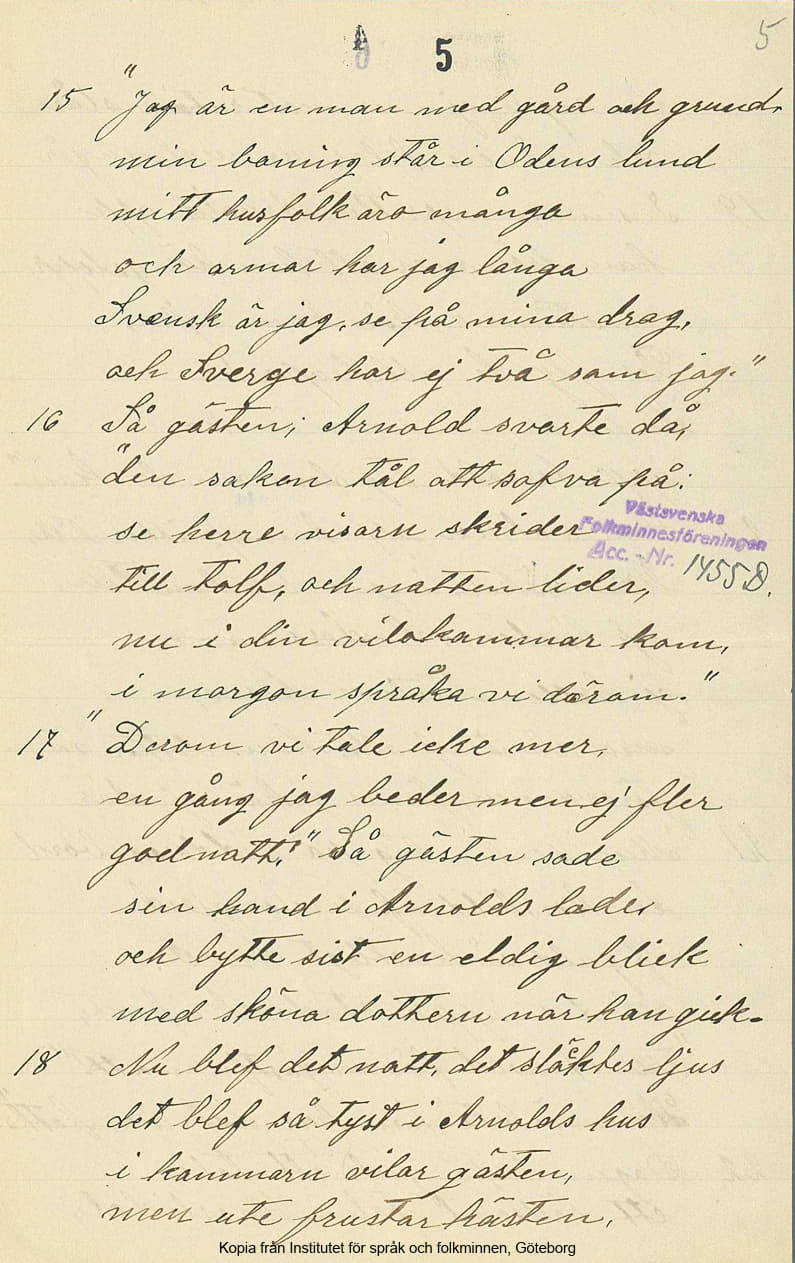 5 5
15 "Jag är en man med gård och grund,
min boning står i Odens lund
mitt husfolk äro många
och armar har jag långa
Svensk är jag, se på mina drag,
och Sverge har ej två som jag."
16 Så gästen; Arnold svarte då,
"den saken tål att sofva på:
se herre visarn skrider
Västsvenska
Folkminnesföreningen
Acc.-Nr. 1455 D.
till tolf, och natten lider,
nu i din vilokammar kom,
i morgon språka vi därom."
17 "Derom vi tale icke mer,
en gång jag beder men ej fler
godnatt!" Så gästen sade
sin hand i Arnolds lade,
och bytte sist en eldig blick
med sköna dottern när han gick.
18 Nu blef det natt, det släcktes ljus
det blef så tyst i Arnolds hus
i kammarn vilar gästen,
men ute frustar hästen,
Kopia från Institutet för språk och folkminnen, Göteborg